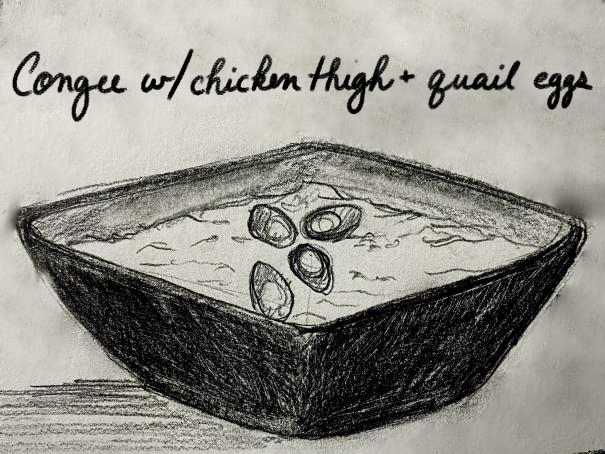 Congee w/ chicken thigh + quail eggs